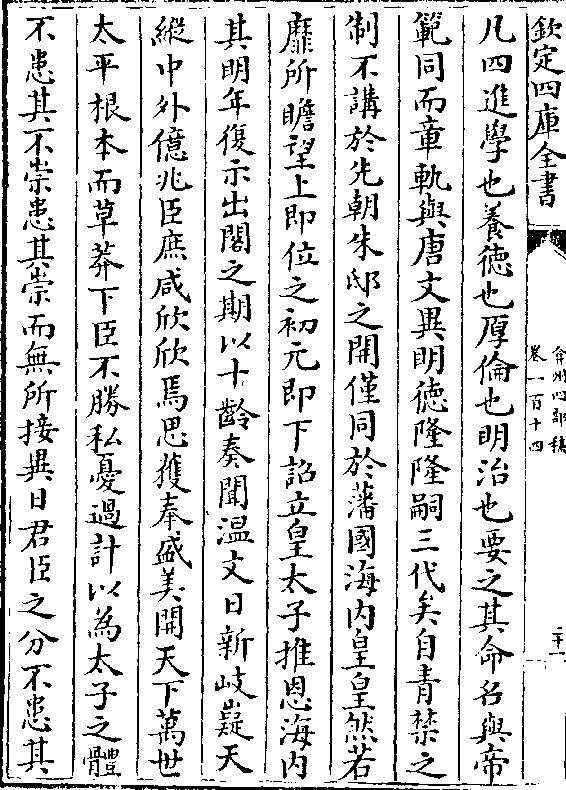 欽定四庫全書
弇州四部稿
卷一百十四
二十一
凡四進學也養德也厚倫也明治也要之其命名與帝
範同而章軌與唐文異明德隆隆嗣三代矣自青禁之
制不講於先朝朱邸之開僅同於藩國海内皇皇然若
靡所瞻望上即位之初元即下詔立皇太子推恩海内
其明年復示出閣之期以十齡奏聞温文日新岐嶷天
縱中外億兆臣庶咸欣欣焉思獲奉盛美開天下萬世
太平根本而草莽下臣不勝私憂過計以為太子之體
不患其不崇患其崇而無所接異日君臣之分不患其